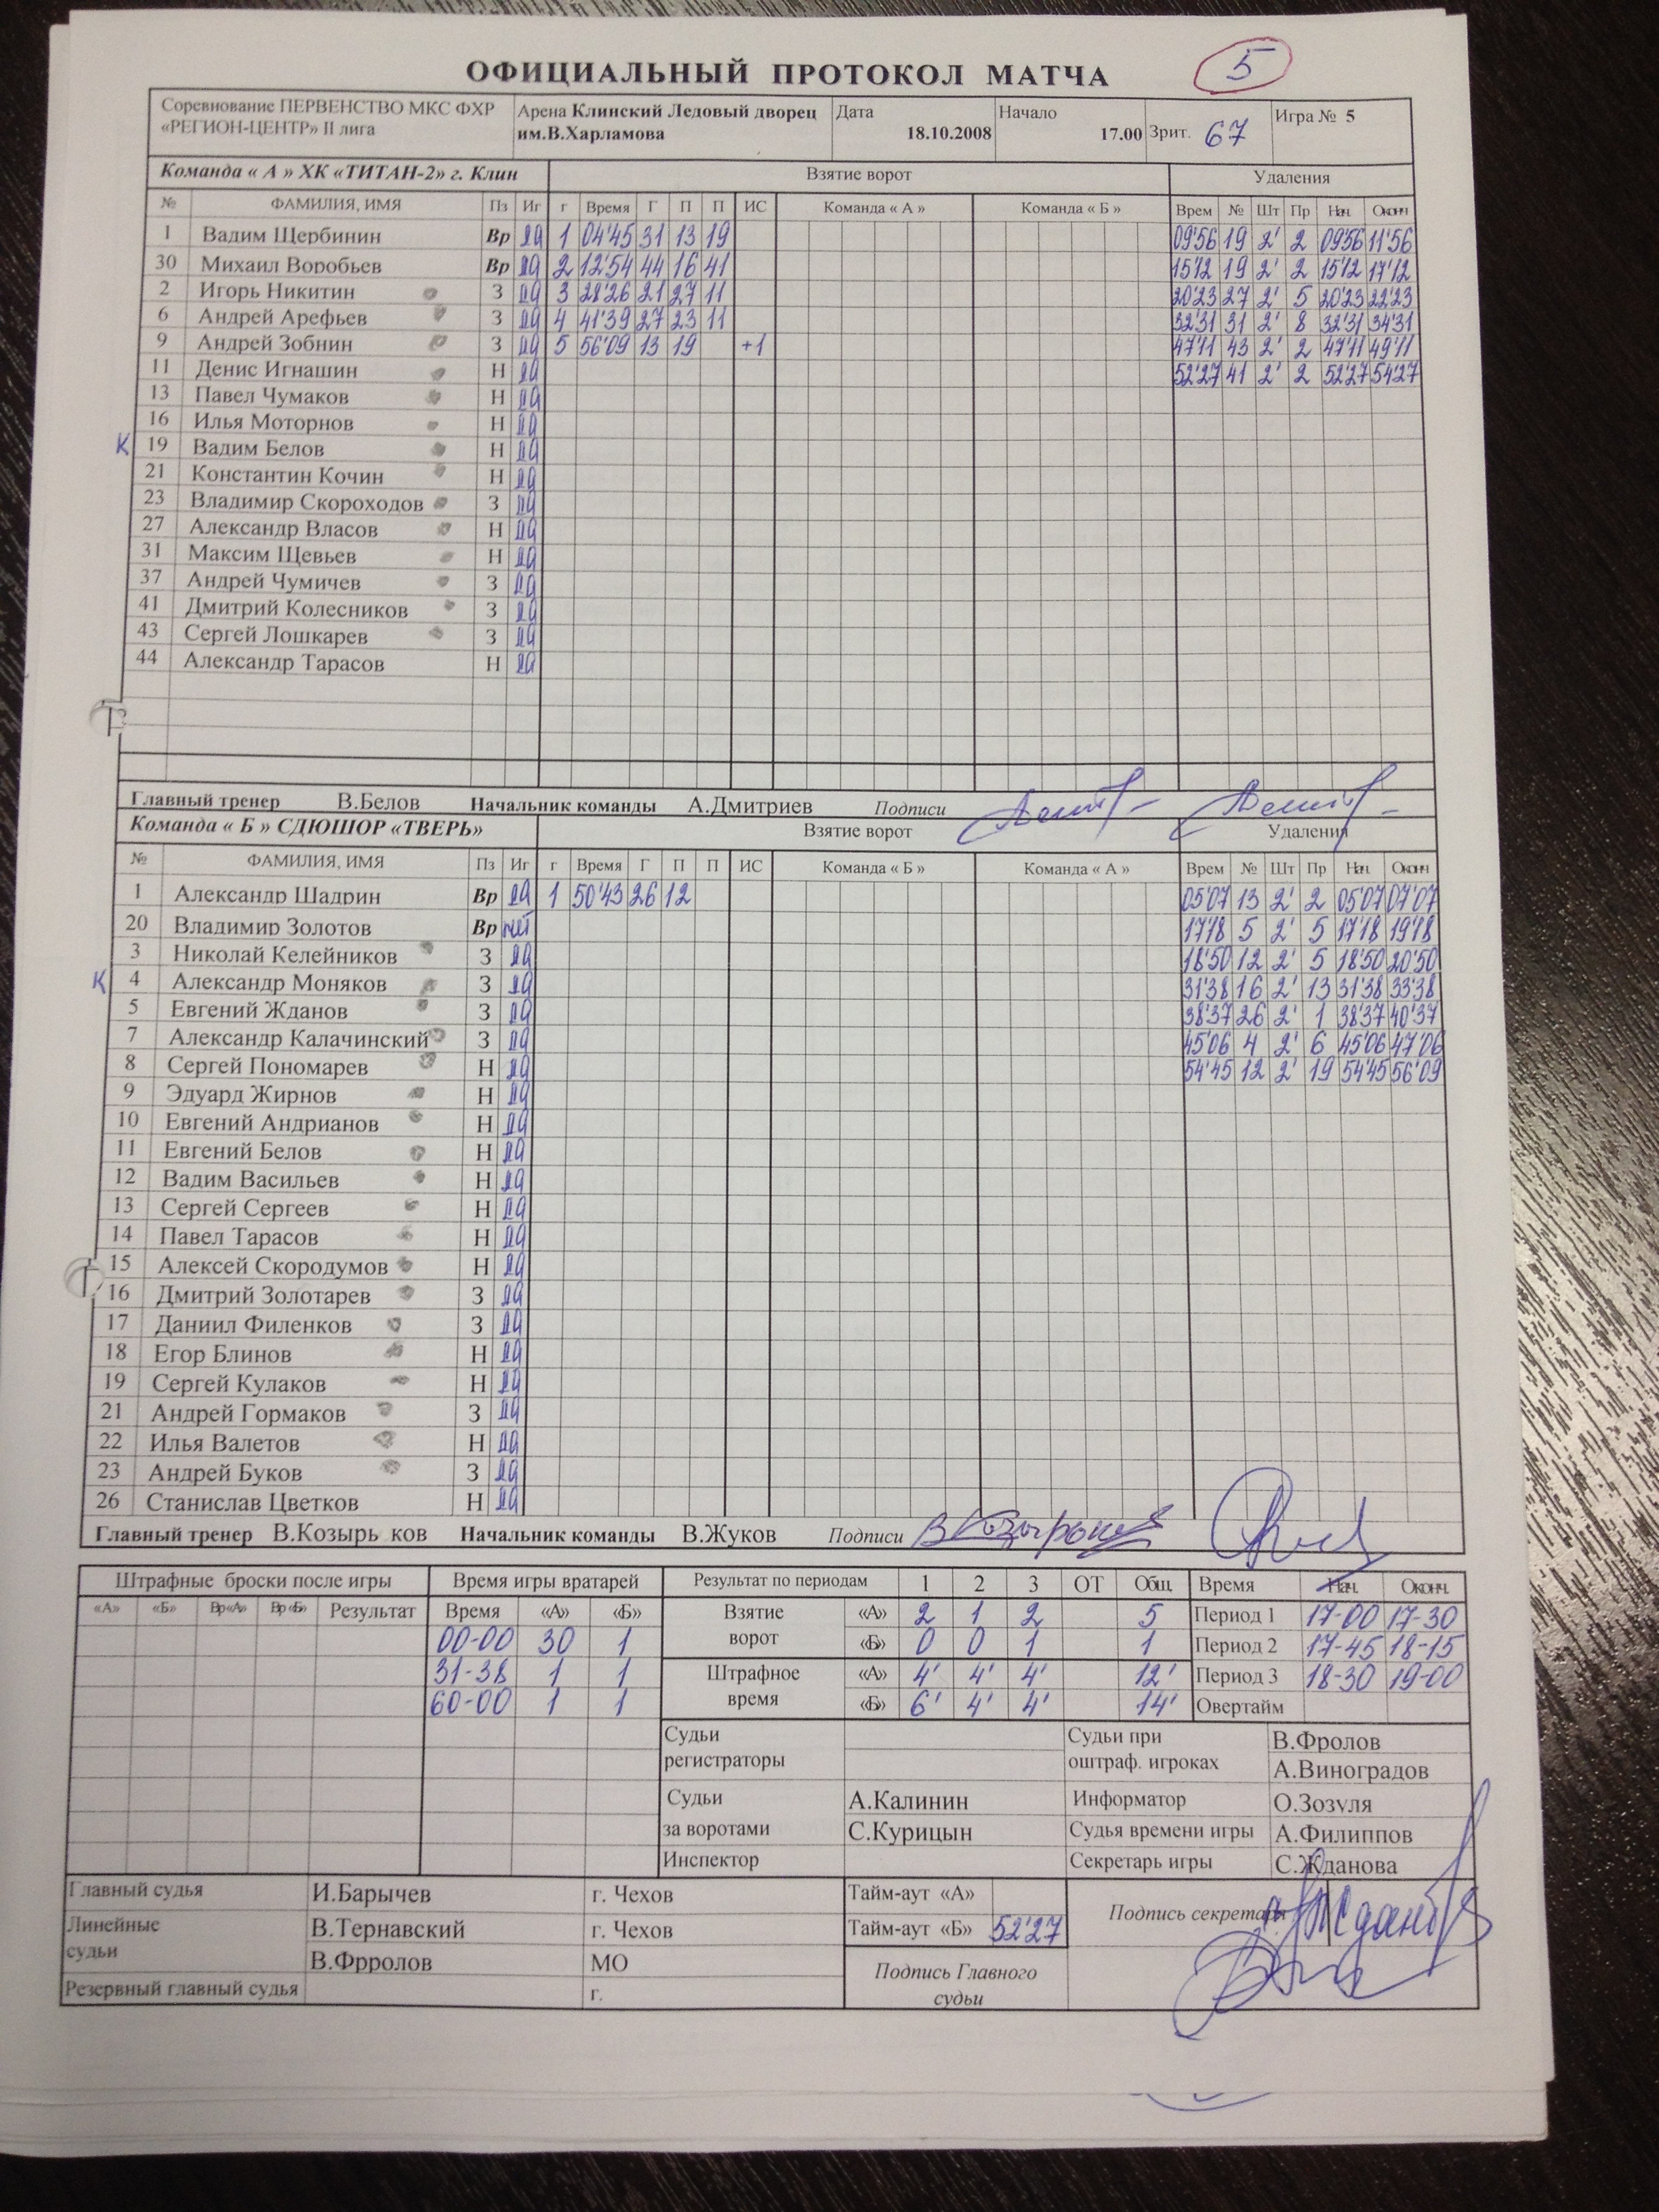 ОФИЦИАЛЬНЫЙ ПРОТОКОЛ МАТЧА 5
Соревнование ПЕРВЕНСТВО МКС ФХР Арена Клинский Ледовый дворец Дата Начало Игра № 5
«РЕГИОН-ЦЕНТР» II лига им.В.Харламова 18.10.2008 17.00 Зрит. 67
Команда « А » ХК «ТИТАН-2» г. Клин Взятие ворот Удаления
№ ФАМИЛИЯ, ИМЯ Пз Иг г Время Г П П ИС Команда « А » Команда « Б » Врем № Шт Пр Нач. Оконч
1 Вадим Щербинин Вр да 1 04'45 31 13 19 09'56 19 2' 2 09'56 11'56
30 Михаил Воробьев Вр да 2 12'54 44 16 41 15'12 19 2' 2 15'12 17'12
2 Игорь Никитин З да 3 28'26 21 27 11 20'23 27 2' 5 20'23 22'23
6 Андрей Арефьев З да 4 41'39 27 23 11 32'31 31 2' 8 32'31 34'31
9 Андрей Зобнин З да 5 56'09 13 19 +1 47'11 43 2' 2 47'11 49'11
11 Денис Игнашин Н да 52'27 41 2' 2 52'27 54'27
13 Павел Чумаков Н да
16 Илья Моторнов Н да
К 19 Вадим Белов Н да
21 Константин Кочин Н да
23 Владимир Скороходов З да
27 Александр Власов Н да
31 Максим Щевьев Н да
37 Андрей Чумичев З да
41 Дмитрий Колесников З да
43 Сергей Лошкарев З да
44 Александр Тарасов Н да
Главный тренер В.Белов Начальник команды А.Дмитриев Подписи
Команда « Б » СДЮШОР «ТВЕРЬ» Взятие ворот Удаления
№ ФАМИЛИЯ, ИМЯ Пз Иг г Время Г П П ИС Команда « Б » Команда « А » Врем № Шт Пр Нач. Оконч
1 Александр Шадрин Вр да 1 50'43 26 12 05'07 13 2' 2 05'07 07'07
20 Владимир Золотов Вр нет 17'18 5 2' 5 17'18 19'18
3 Николай Келейников З да 18'50 12 2' 5 18'50 20'50
К 4 Александр Моняков З да 31'38 16 2' 13 31'38 33'38
5 Евгений Жданов З да 38'37 26 2' 1 38'37 40'37
7 Александр Калачинский З да 45'06 4 2' 6 45'06 47'06
8 Сергей Пономарев Н да 54'45 12 2' 19 54'45 56'09
9 Эдуард Жирнов Н да
10 Евгений Андрианов Н да
11 Евгений Белов Н да
12 Вадим Васильев Н да
13 Сергей Сергеев Н да
14 Павел Тарасов Н да
15 Алексей Скородумов Н да
16 Дмитрий Золотарев З да
17 Даниил Филенков З да
18 Егор Блинов Н да
19 Сергей Кулаков Н да
21 Андрей Гормаков З да
22 Илья Валетов Н да
23 Андрей Буков З да
26 Станислав Цветков Н да
Главный тренер В.Козырь ков Начальник команды В.Жуков Подписи
Штрафные броски после игры Время игры вратарей Результат по периодам 1 2 3 ОТ Общ. Время Нач. Оконч.
«А» «Б» Вр«А» Вр«Б» Результат Время «А» «Б» Взятие ворот «А» 2 1 2 5 Период 1 17-00 17-30
00-00 30 1 «Б» 0 0 1 1 Период 2 17-45 18-15
31-38 1 1 Штрафное время «А» 4' 4' 4' 12' Период 3 18-30 19-00
60-00 1 1 «Б» 6' 4' 4' 14' Овертайм
Судьи регистраторы Судьи при оштраф. игроках В.Фролов
А.Виноградов
Судьи за воротами А.Калинин Информатор О.Зозуля
С.Курицын Судья времени игры А.Филиппов
Инспектор Секретарь игры С.Жданова
Главный судья И.Барычев г. Чехов Тайм-аут «А» Подпись секретаря
Линейные судьи В.Тернавский г. Чехов Тайм-аут «Б» 52'27
В.Фрролов МО Подпись Главного судьи
Резервный главный судья г.